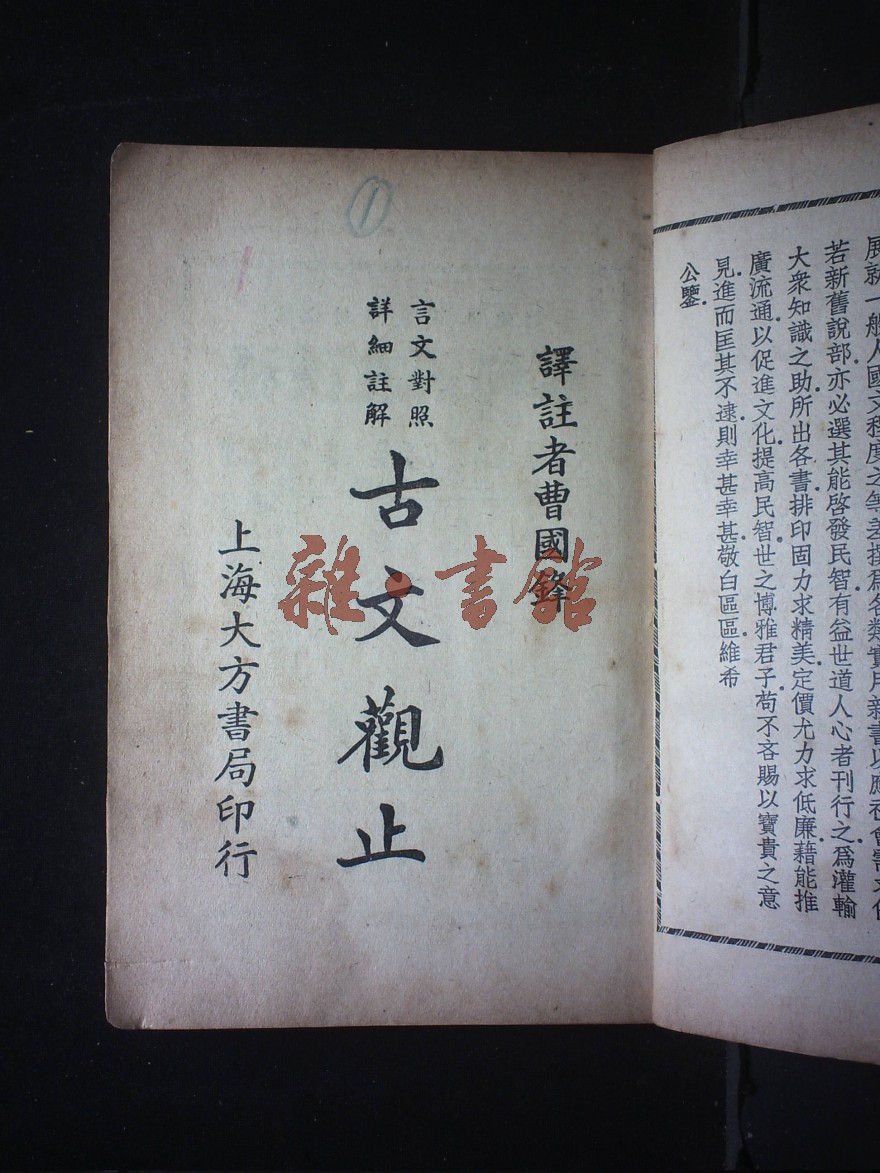 展就一般人國文程度之等差撰爲各類實用新書以應社會需要
若新舊說部亦必選其能啓發民智有益世道人心者刊行之爲灌輸
大衆知識之助所出各書排印固力求精美定價尤力求低廉藉能推
廣流通以促進文化提高民智世之博雅君子苟不吝賜以寶貴之意
見進而匡其不逮則幸甚幸甚敬白區區維希
公鑒
譯註者曹國鋒
言文對照
詳細註解
古文觀止
上海大方書局印行
雜·書館
①